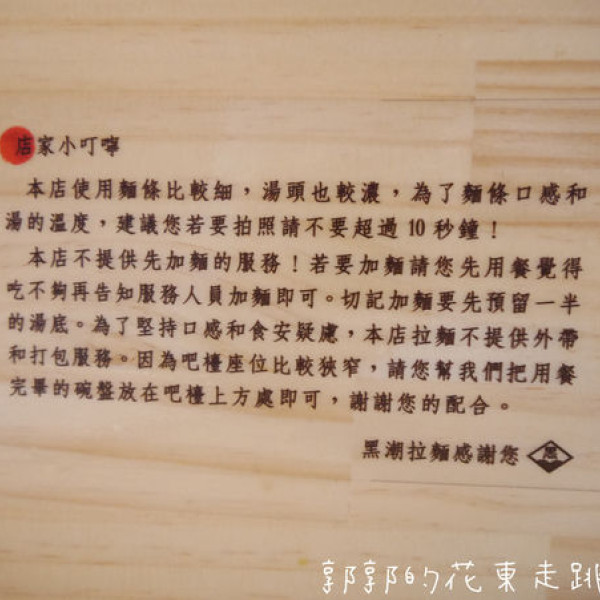 店家小叮嚀
本店使用麵條比較細，湯頭也較濃，為了麵條口感和
湯的溫度，建議您若要拍照請不要超過10秒鐘！
本店不提供先加麵的服務！若要加麵請您先用餐覺得
吃不夠再告知服務人員加麵即可。切記加麵要先預留一半
的湯底。為了堅持口感和食安疑慮，本店拉麵不提供外帶
和打包服務。因為吧檯座位比較狹窄，請您幫我們把用餐
完畢的碗盤放在吧檯上方處即可，謝謝您的配合。
黑潮拉麵感謝您 黑
郭郭的花東走跳